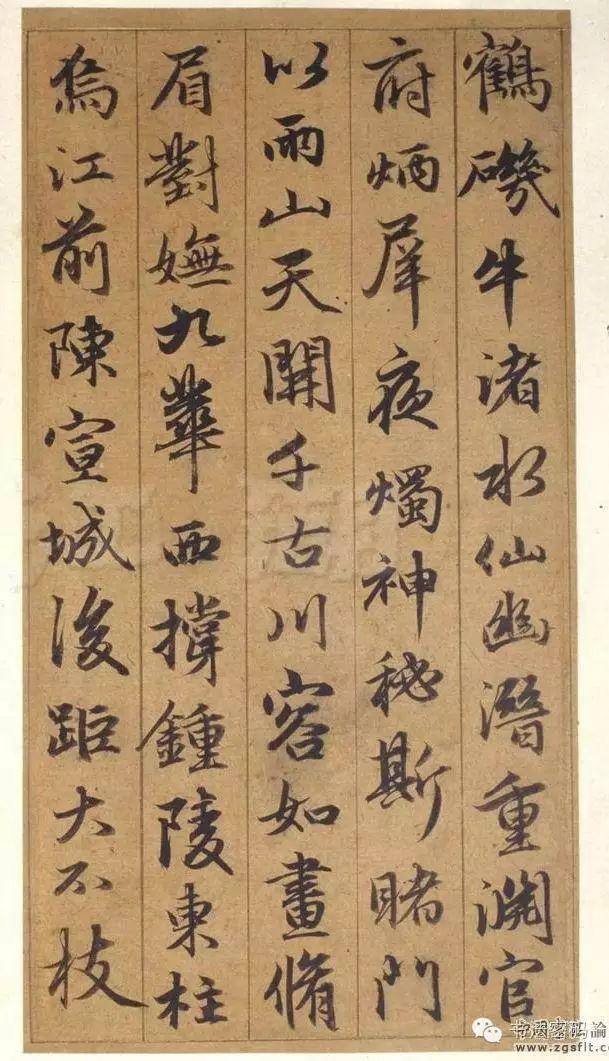 鶴磯牛渚水仙幽潛重淵官
府炳犀夜燭神秘斯睹門
以兩山天開千古川容如畫脩
眉對嫵九華西撐鍾陵東柱
烏江前陳宣城後距大不枝
www.zgsflt.com